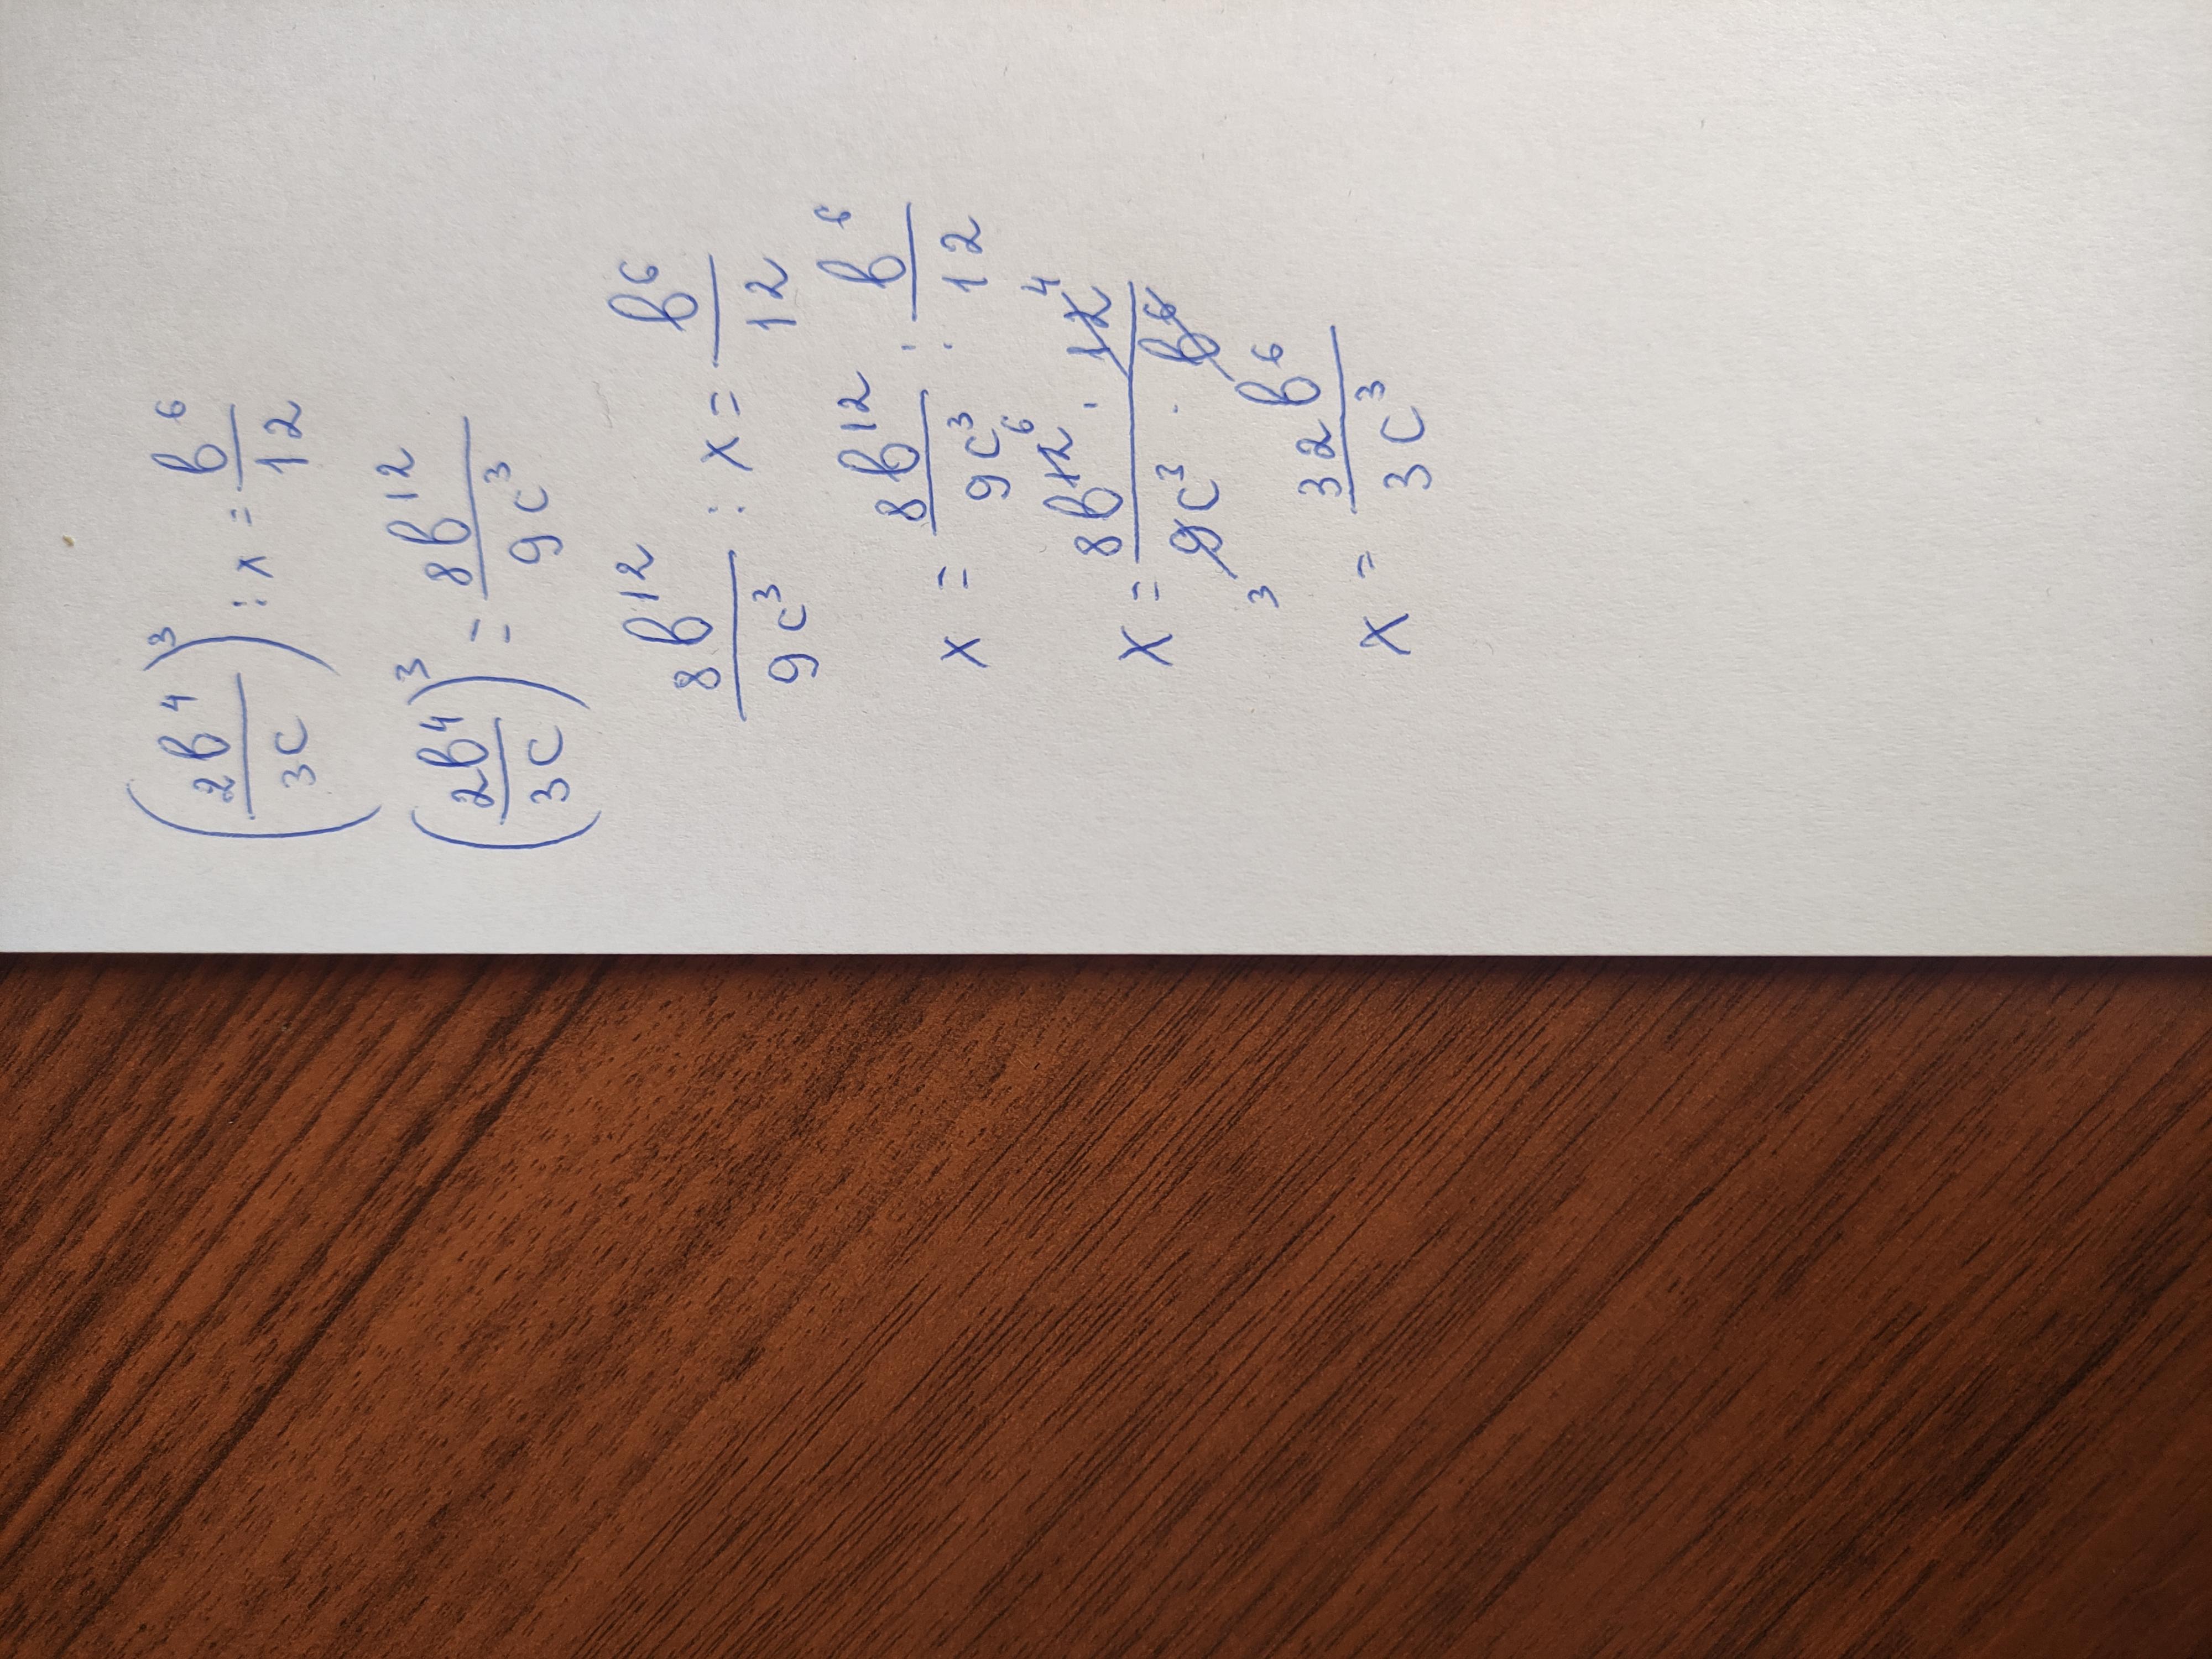 (2b⁴/3c)³ : x = b⁶/12
(2b⁴/3c)³ = 8b¹²/9c³
8b¹²/9c³ : x = b⁶/12
x = 8b¹²/9c³ : b⁶/12
x = 8b¹²⁶ · 12⁴/9c³ · b⁶
3
x = 32b⁶/3c³